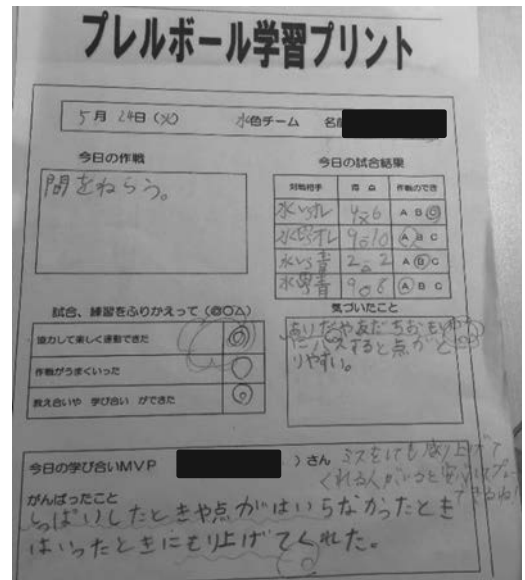 プレルボール学習プリント
5月 24日(火) 水色チーム 名前
今日の作戦
間をねらう。
今日の試合結果
対戦相手 得点 作戦のでき
4 6 A B C
9 10 A B C
2 2 A B C
9 8 A B C
試合、練習をふりかえって(◎○△)
協力して楽しく運動できた ◎
作戦がうまくいった ○
教え合いや 学び合い ができた ◎
気づいたこと
にパスすると点がと
りやすい。
今日の学び合いMVP )さん
ミスをしても盛り上げて
くれる人がいると安心してプレー
できるね!
がんばったこと
しっぱいしたときや点がはいらなかったとき
はいったときにもり上げてくれた。